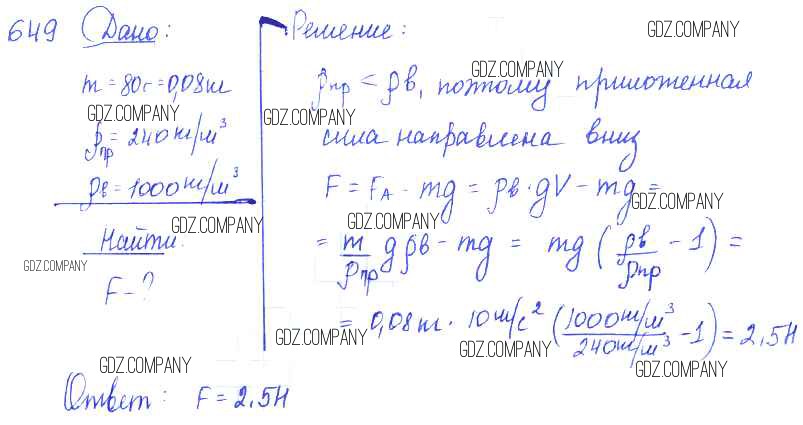 649 Дано:
m = 80г = 0,08кг
ρпр = 240 кг/м³
ρв = 1000 кг/м³
Найти
F - ?
Решение:
ρпр < ρв, поэтому приложенная
сила направлена вниз
F = FA - mg = ρв · gV - mg =
= m/ρпр gρв - mg = mg (ρв/ρпр - 1) =
= 0,08кг · 10м/с² (1000кг/м³/240кг/м³ - 1) = 2,5Н
Ответ: F = 2,5Н
GDZ.COMPANY
GDZ.COMPANY
GDZ.COMPANY
GDZ.COMPANY
GDZ.COMPANY
GDZ.COMPANY
GDZ.COMPANY
GDZ.COMPANY
GDZ.COMPANY
GDZ.COMPANY
GDZ.COMPANY
GDZ.COMPANY
GDZ.COMPANY